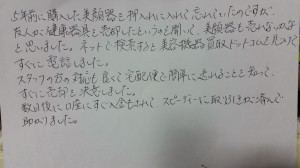 5年前に購入した美顔器を押入れに入れて忘れていたのですが、
友人が健康器具を売却したというのを聞いて、美顔器も売れないかな
と思いました。ネットで検索すると美容機器買取ドットコムを見つけて
すぐに電話しました。
スタッフの方の対応も良くて宅配便で簡単に送れることを知って、
すぐに売却を決意しました。
数日後に口座にすぐ入金もされて、スピーディーに取り引きが済んで
助かりました。